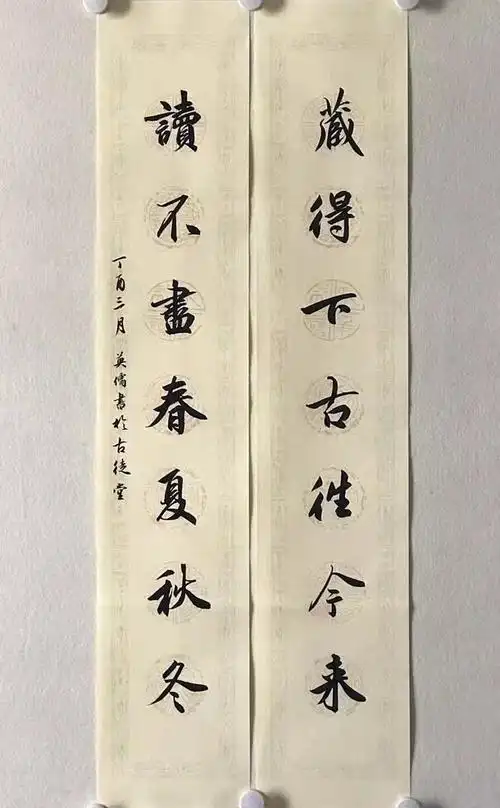 藏得下古往今来
讀不盡春夏秋冬
丁酉三月 英儒書於古徒堂